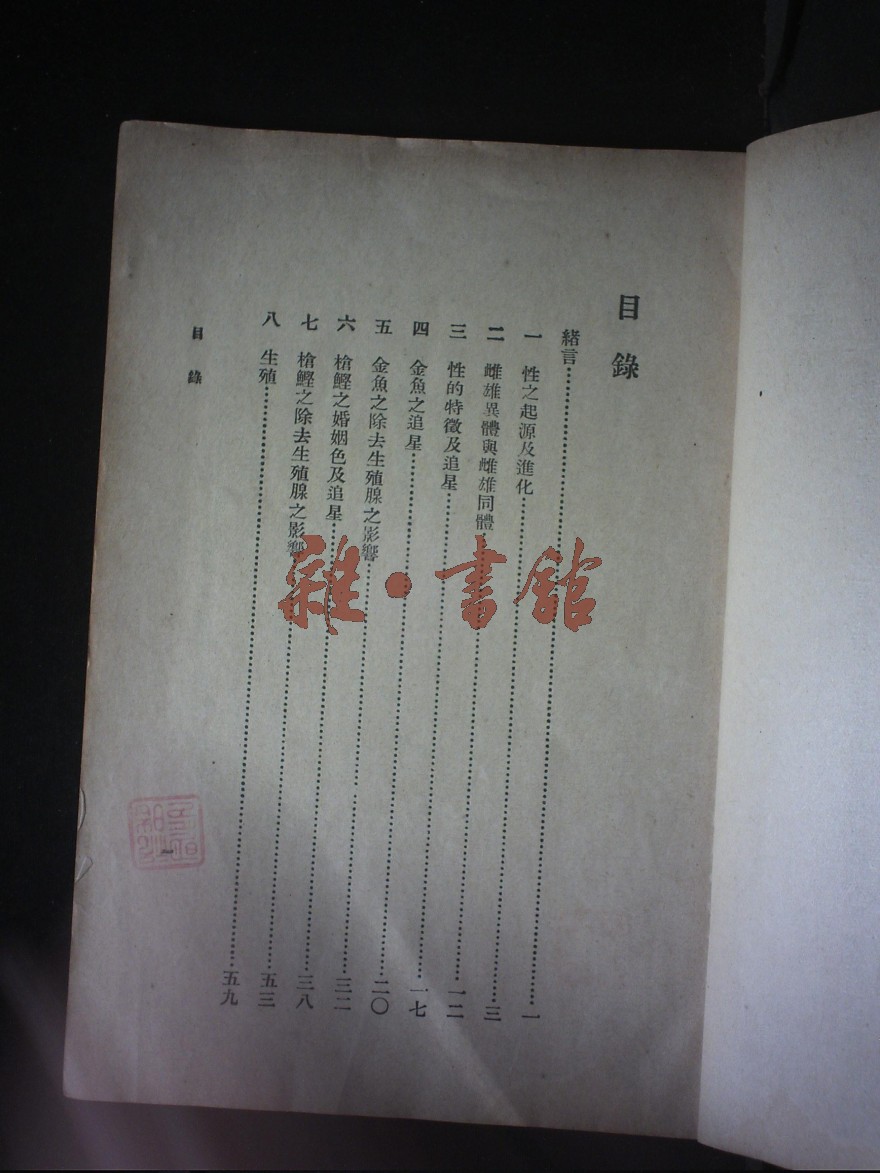 目錄
緒言……一
一 性之起源及進化……三
二 雌雄異體與雌雄同體……一二
三 性的特徵及追星……一七
四 金魚之追星……二〇
五 金魚之除去生殖腺之影響……三二
六 槍鰹之婚姻色及追星……三八
七 槍鰹之除去生殖腺之影響……五三
八 生殖……五九
目錄
一
雜·書館